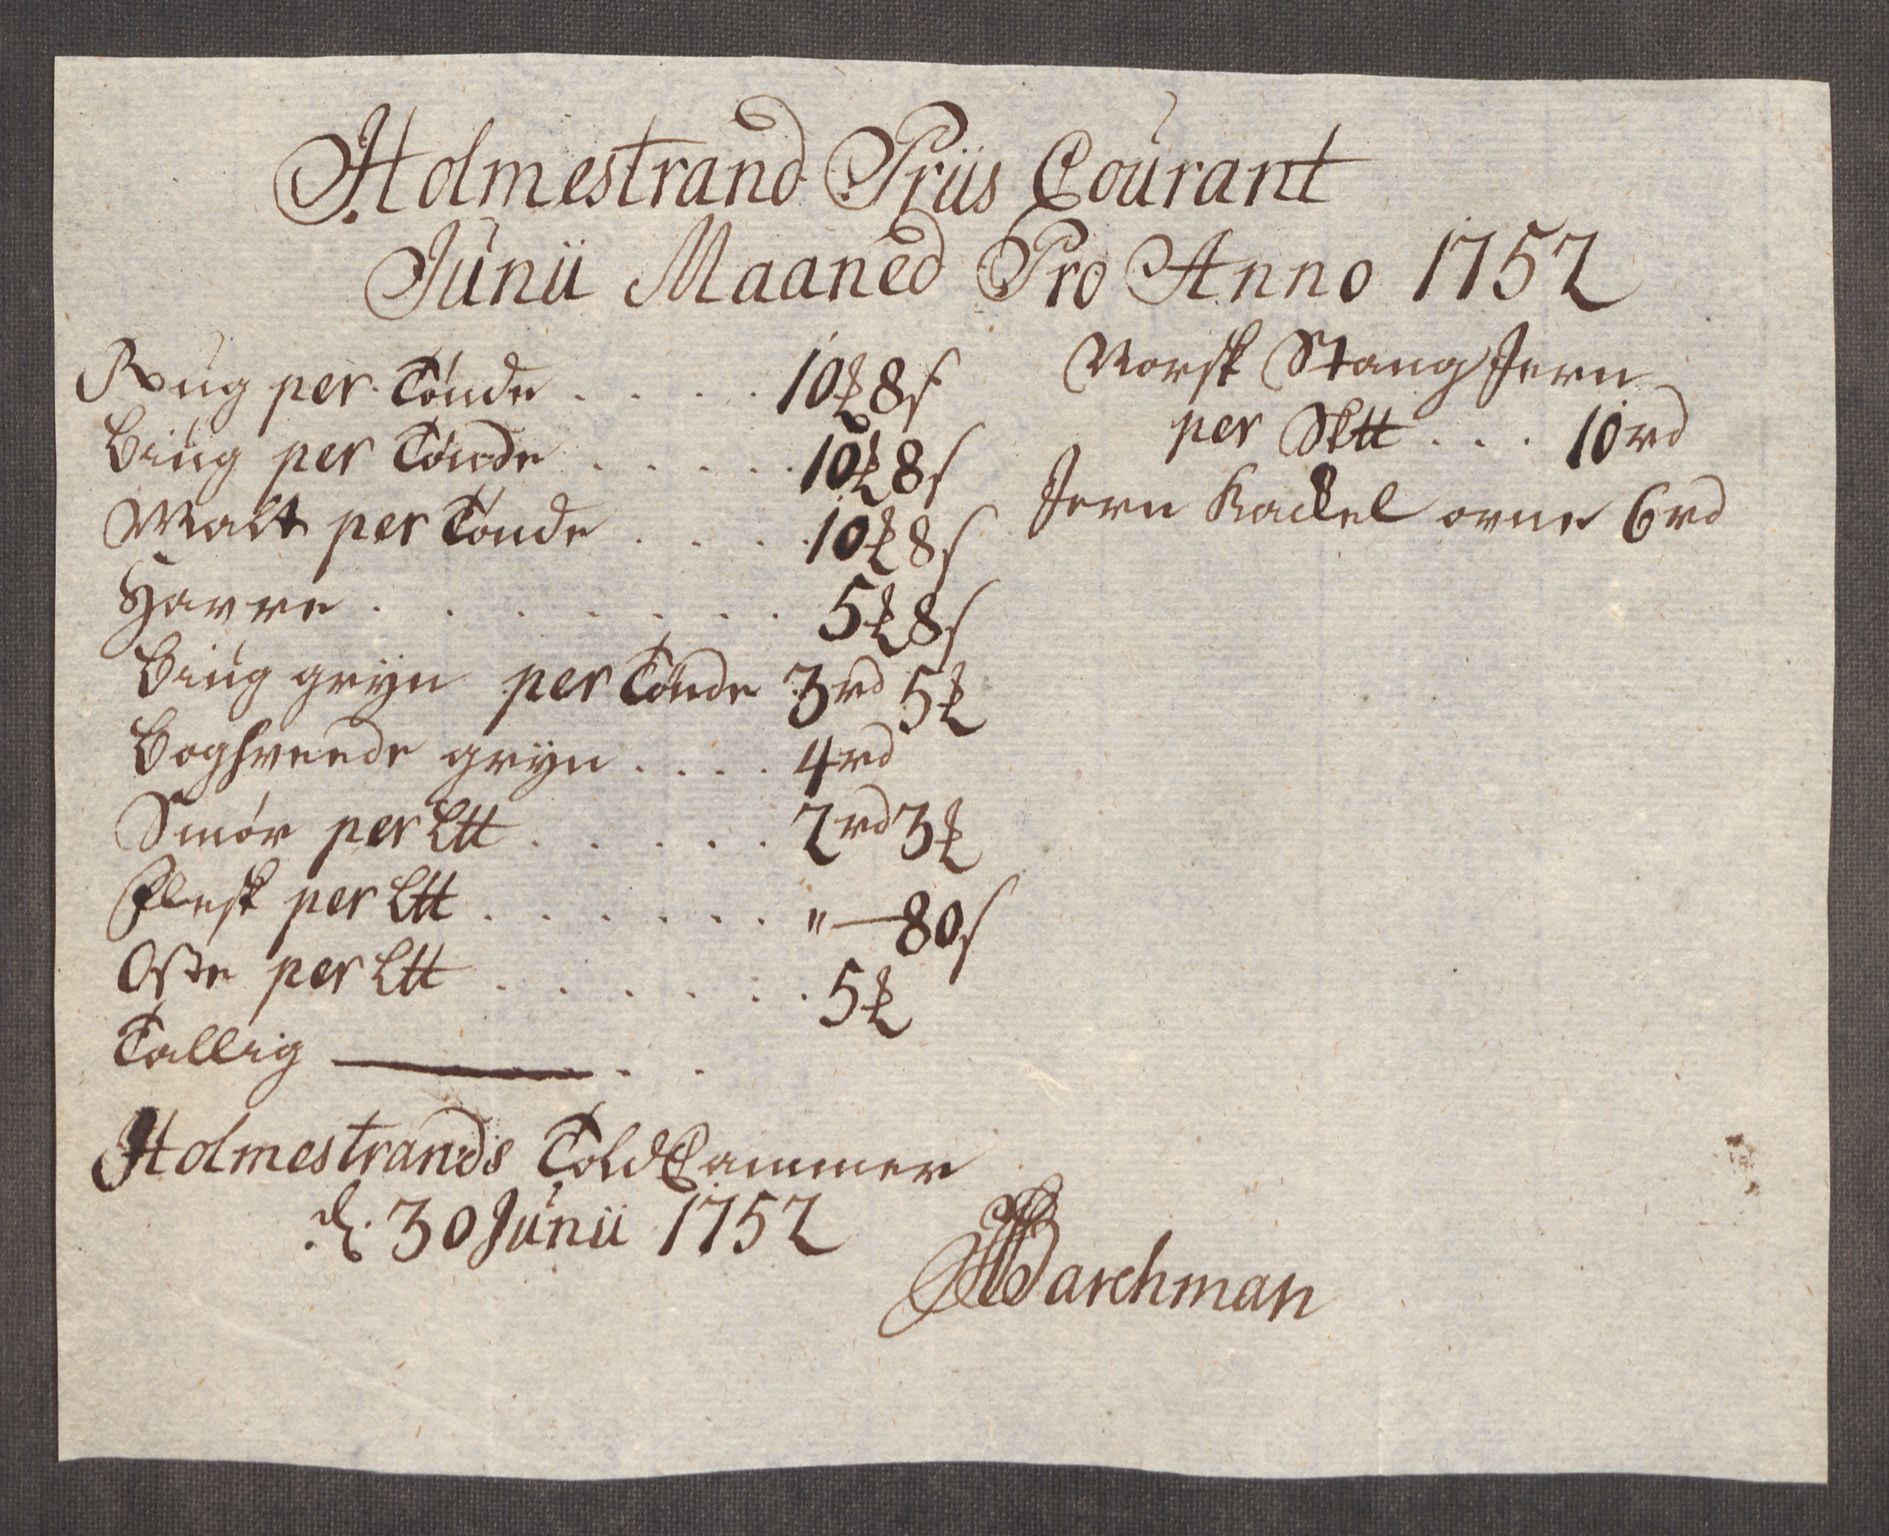 Holmestrand Priis Courant
Junii Maaned Pro Anno 1752
Rug per Tønde . . . . . 10 ₰ 8 s
Biug per Tønde . . . . . 10 ₰ 8 s
Malt per Tønde . . . . 10 ₰ 8 s
Havre . . . . . . . 5 ₰ 8 s
Biug gryn per Tønde 3 rd 5 ₰
Boghveede gryn . . . . 4 rd
Smør per L℔ . . . . . 2 rd 3 ₰
Flesk per L℔ . . . . . . " — 80 s
Oste per L℔ . . . . . . 5 ₰
Tallig — . .
Norsk Stang Jern
per Sk℔ . . . 10 rd
Jern Kackel ovne 6 rd
Holmestrands Told Cammer
d. 30 Junii 1752
Barchman